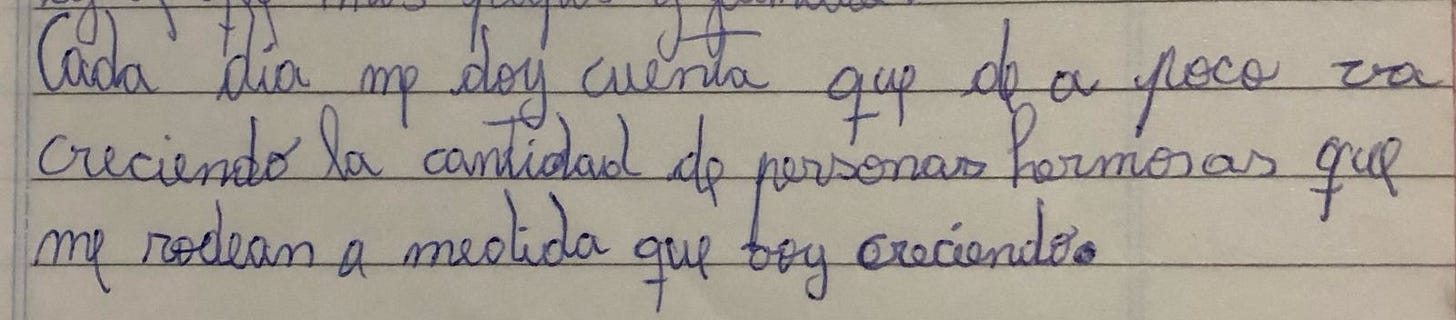 Cada día me doy cuenta que de a poco va
creciendo la cantidad de personas hermosas que
me rodean a medida que boy creciendo.